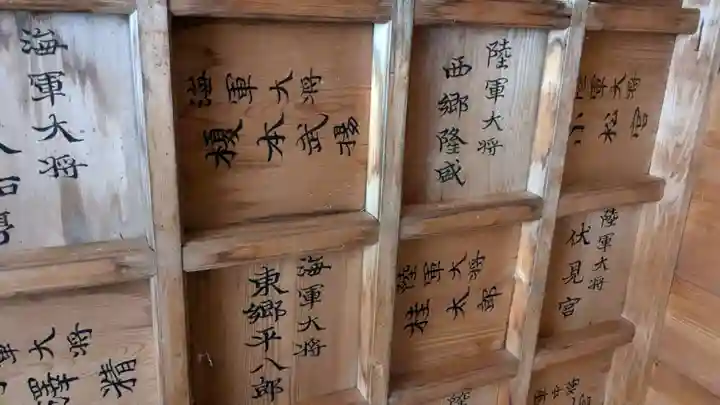 海軍大将
海軍大将
榎本武揚
陸軍大将
西郷隆盛
陸軍大将
小松宮
海軍大将
東郷平八郎
陸軍大将
桂太郎
陸軍大将
伏見宮
軍大将
陸